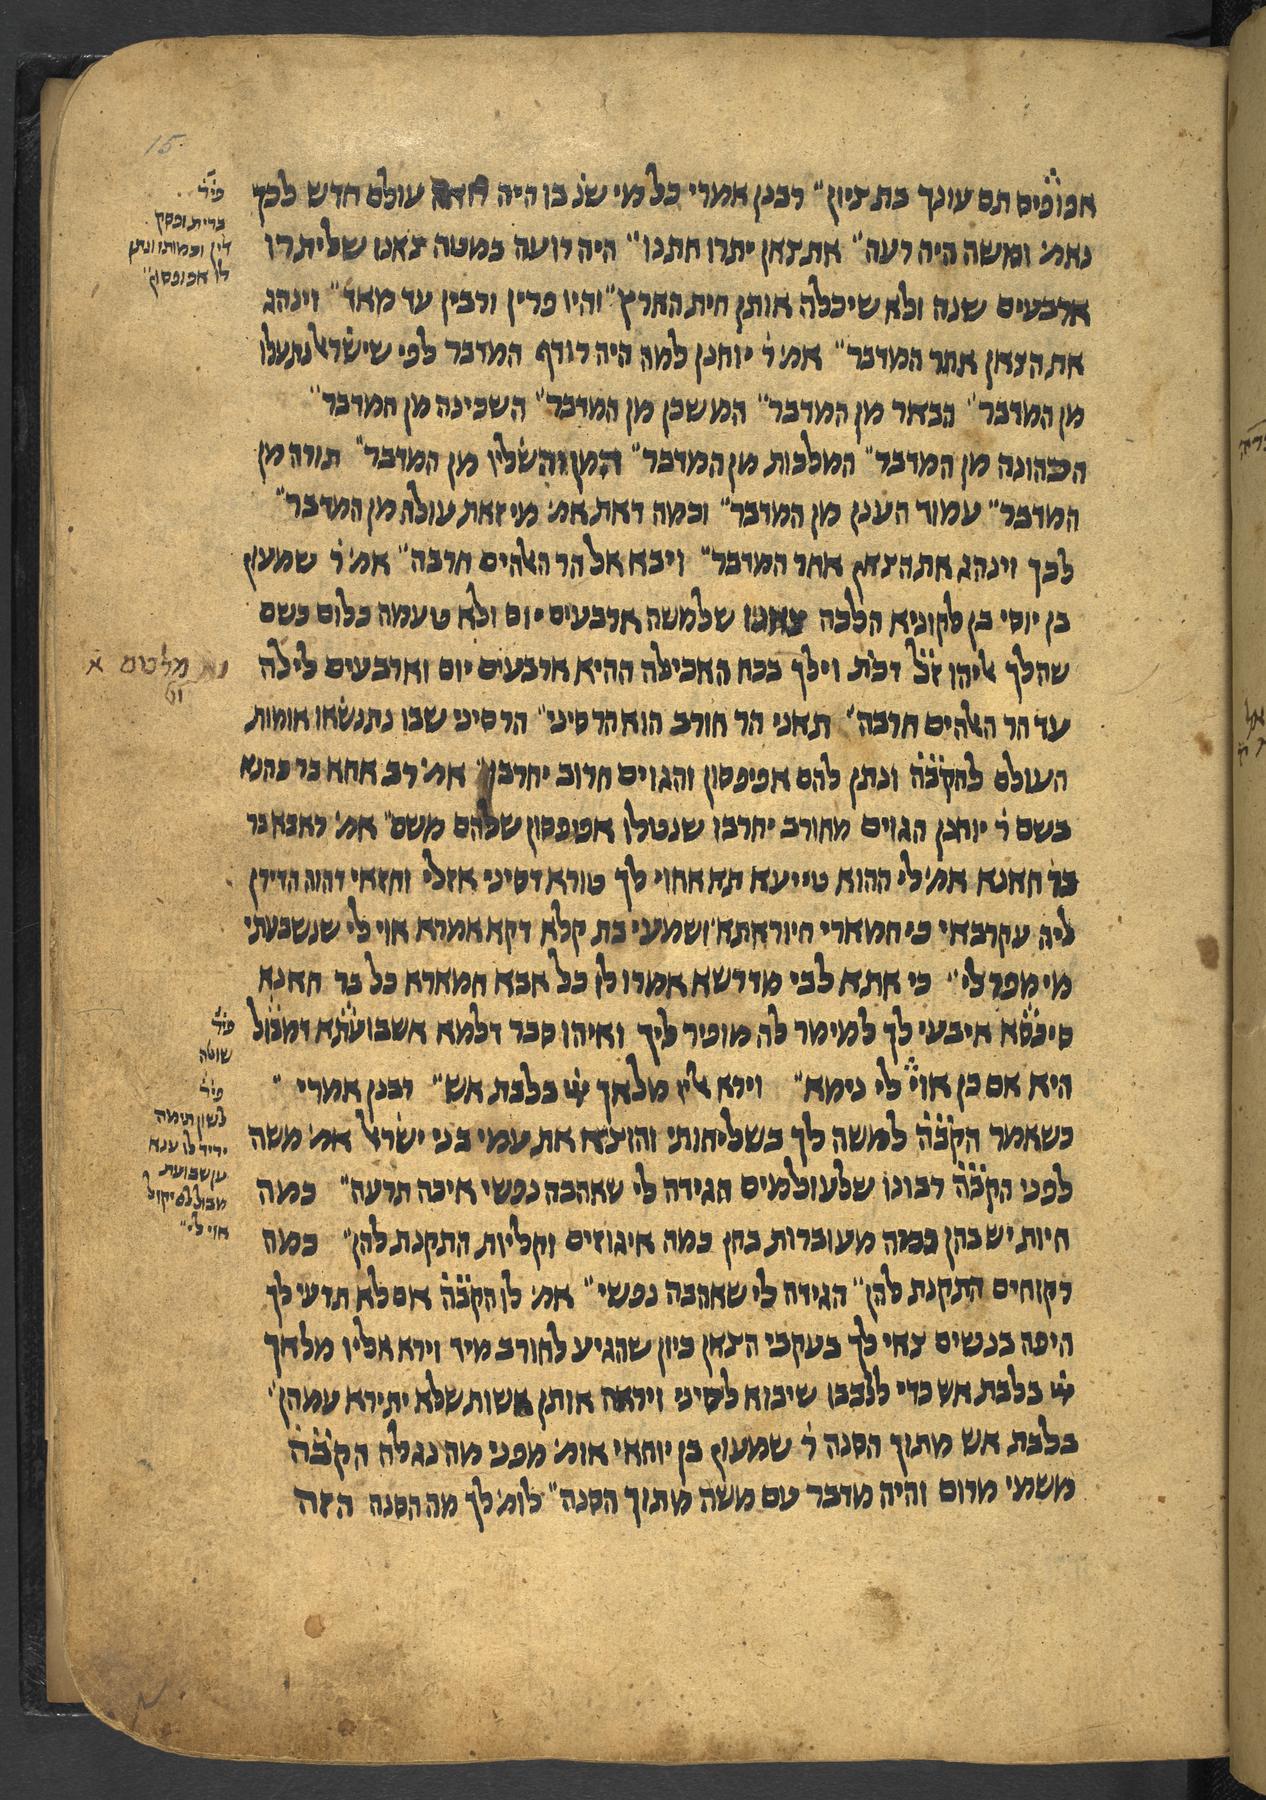 15
אפופסים תם עונך בת ציון״ רבנן אמרי כל מי שנ׳ בן היה עולם חדש לכך
נאמ׳ ומשה היה רעה״ את צאן יתרו חתנו״ היה רועה כמטה צאנו שליתרו
ארבעים שנה ולא שיכלה אותן חית הארץ״ והיו פרין ורבין עד מאד״ וינהג
את הצאן אחר המדבר״ אמ׳ ר׳ יוחנן למה היה רודף המדבר לפי שישראל נתעלו
מן המדבר״ הבאר מן המדבר״ המשכן מן המדבר״ השכינה מן המדבר״
הכהונה מן המדבר״ המלכות מן המדבר״ המן והשליו מן המדבר״ תורה מן
המדבר״ עמוד הענן מן המדבר״ וכמה דאת אמ׳ מי זאת עולה מן המדבר״
לכך וינהג את הצאן אחר המדבר״ ויבא אל הר האלהים חרבה״ אמ׳ ר׳ שמעון
בן יוסי בן לקוניא הלכה צאנו שלמשה ארבעים יום ולא טעמה כלום כשם
שהלך אליהו ז״ל דכת׳ וילך בכח האכילה ההיא ארבעים יום וארבעים לילה
עד הר האלהים חרבה״ תאני הר חורב הוא הר סיני״ הר סיני שבו נתנשאו אומות
העולם להקב״ה ונתן להם אפיפסון והגוים חרוב יחרבו״ אמ׳ רב אחא בר כהנא
בשם ר׳ יוחנן הגוים מחורב יחרבו שנטלו אפופסון שלהם משם״ אמ׳ ראבא בר
בר חאנא אמ׳ לי ההוא טייעא תא אחוי לך טורא דסיני אזלי וחזאי דהוה הדירן
ליה עקרבאי כי חמארי חיוראתא׳ ושמעי בת קלא דקא אמרא אוי לי שנשבעתי
מי מפר לי״ כי אתא לבי מדרשא אמרו לו כל אבא חמארא כל בר חאנא
סיכסא איבעי לך למימר לה מופיר ליך ואיהו סבר דלמא אשבועתא דמבול
היא אם כן אוי לי נימא״ וירא אליו מלאך בלבת אש״ רבנן אמרי ״
כשאמר הקב״ה למשה לך בשליחותי והוציא את עמי בני ישראל אמ׳ משה
לפני הקב״ה רבונו שלעולמים הגידה לי שאהבה נפשי איכה תרעה״ כמה
חיות יש בהן כמה מעוברות בהן כמה איגוזים וקליות התקנת להן״ כמה
רקוחים התקנת להן״ הגידה לי שאהבה נפשי״ אמ׳ לו הקב״ה אם לא תדעי לך
היפה בנשים צאי לך בעקבי הצאן כיון שהגיע לחורב מיד וירא אליו מלאך
בלבת אש כדי ללבבו שיבוא לסיני ויראה אותן אשות שלא יתירא עמהן״
בלבת אש מתוך הסנה ר׳ שמעון בן יוחאי אומ׳ מפני מה נגלה הקב״ה
משמי מרום והיה מדבר עם משה מתוך הסנה״ לומ׳ לך מה הסנה הזה
פיר׳
ברית ופסק
דין וכמותו ונתן
לו אפופסון״
פיר׳
שוטה
פיר׳
לשון תימה
ידיד לו ענא
על שבועת
מבול לסיקול
אוי לי״